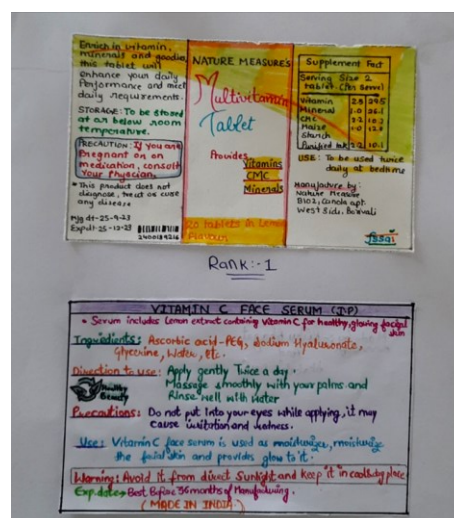 Enrich in vitamin,
minerals and goodies
this tablet will
enhance your daily
Performance and meet
daily requirements.
STORAGE: To be stored
at or below room
temperature.
PRECAUTION: If you are
Pregnant or on
medication, consult
Your Physician.
• This product does not
diagnose, treat or cure
any disease
Mfg dt-25-9-23
Exp dt-25-12-23
2400139216
NATURE MEASURE'S
Multivitamin
Tablet
Provides
Vitamins
CMC
Minerals
20 tablets in Lemon
flavour
Supplement Fact
Serving Size 2
tablet (Per Serve)
Vitamin 2.8 29.5
Mineral
CMC 2.2 10.2
Maize
Starch
Purified 2.2 10.1
USE: To be used twice
daily at bedtime
Manufacture by:
Nature Measure
B102, apt.
West Side. Borivali
fssai
Rank:-1
VITAMIN C FACE SERUM
• Serum includes Lemon extract containing Vitamin C for healthy, glowing facial
skin
Ingredients: Ascorbic acid-PEG, Sodium Hyaluronate,
Glycerine, Water, Etc.
Direction to use: Apply gently Twice a day.
Massage smoothly with your palms and
Rinse well with Water
Healthy
Beauty
Precautions: Do not put into your eyes while applying, it may
cause irritation and redness.
Use: Vitamin C face serum is used as moisturizer, moisturize
the facial skin and provides glow to it.
Warning: Avoid it from direct Sunlight and Keep it in cool&dry place
Exp.date→ Best Before 36 months of Manufacturing.
(MADE IN INDIA)